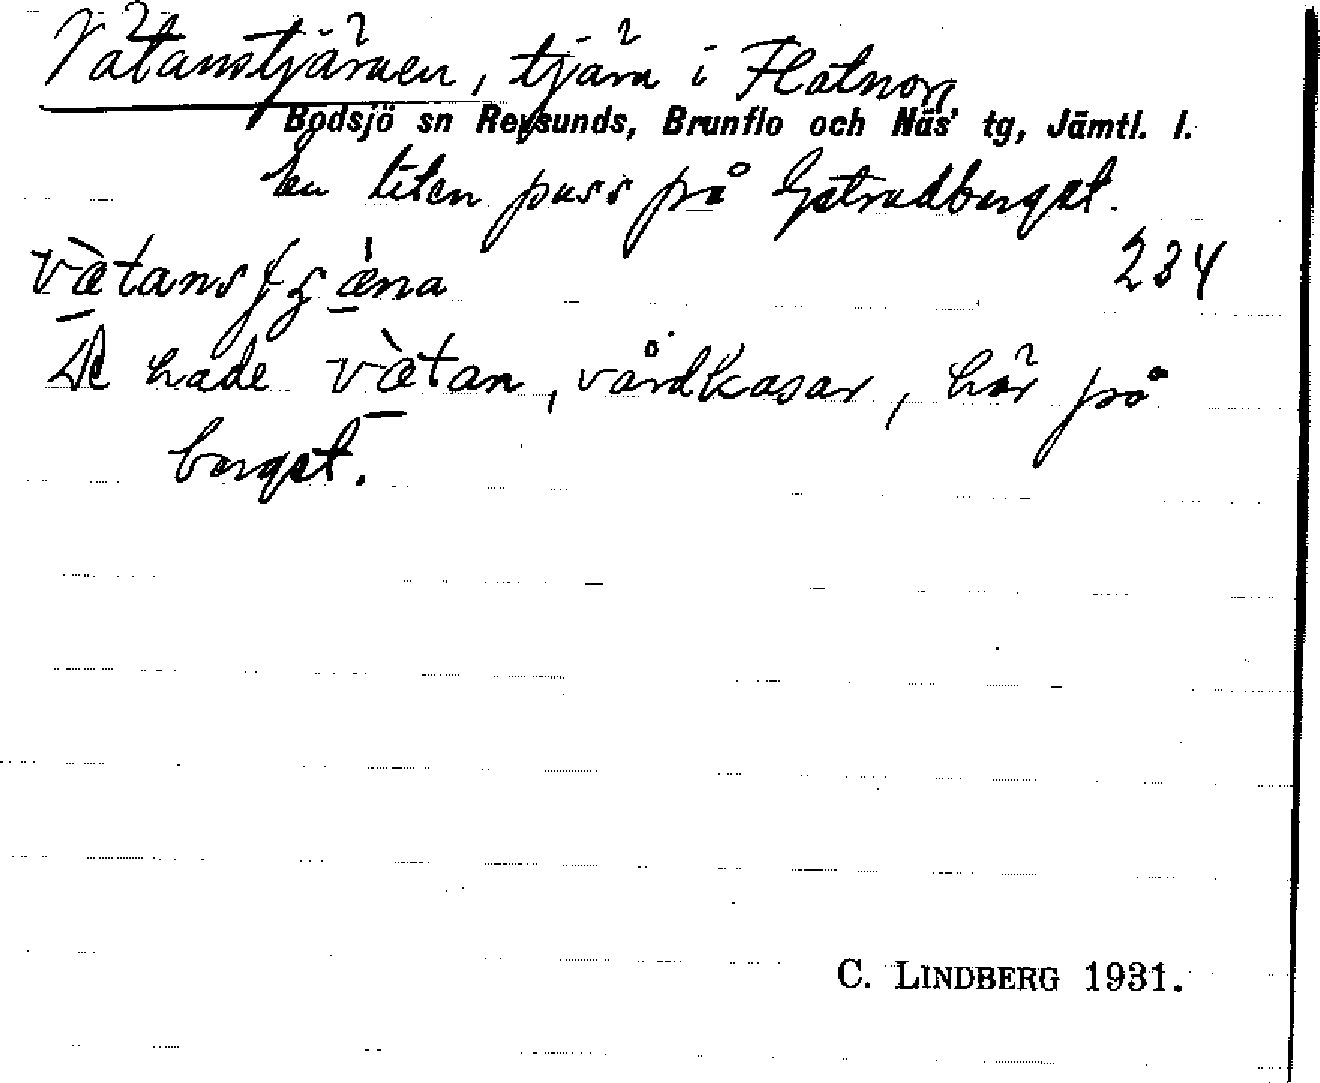 Vätanstjärnen, tjärn i Flatnor,
Bodsjö sn Revsunds, Brunflo och Näs' tg, Jämtl. l.
En liten puss på Gstrudberget.
vætans ʃʒæna 234
De hade vætan, vårdkasar, här på
berget.
C. LINDBERG 1931.